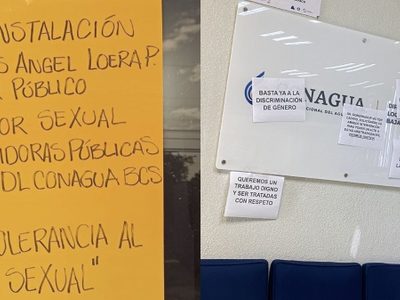 INSTALACIÓN
ANGEL LOERA P.
PÚBLICO
OR SEXUAL
IDORAS PÚBLICAS
DL CONAGUA BCS
OLERANCIA AL
SEXUAL"
BASTA YA A LA
DISCRIMINACIÓN
DE GÉNERO
NAGUA
CIONAL DEL AGUA
QUEREMOS UN
TRABAJO DIGNO
Y SER TRATADAS
CON RESPETO